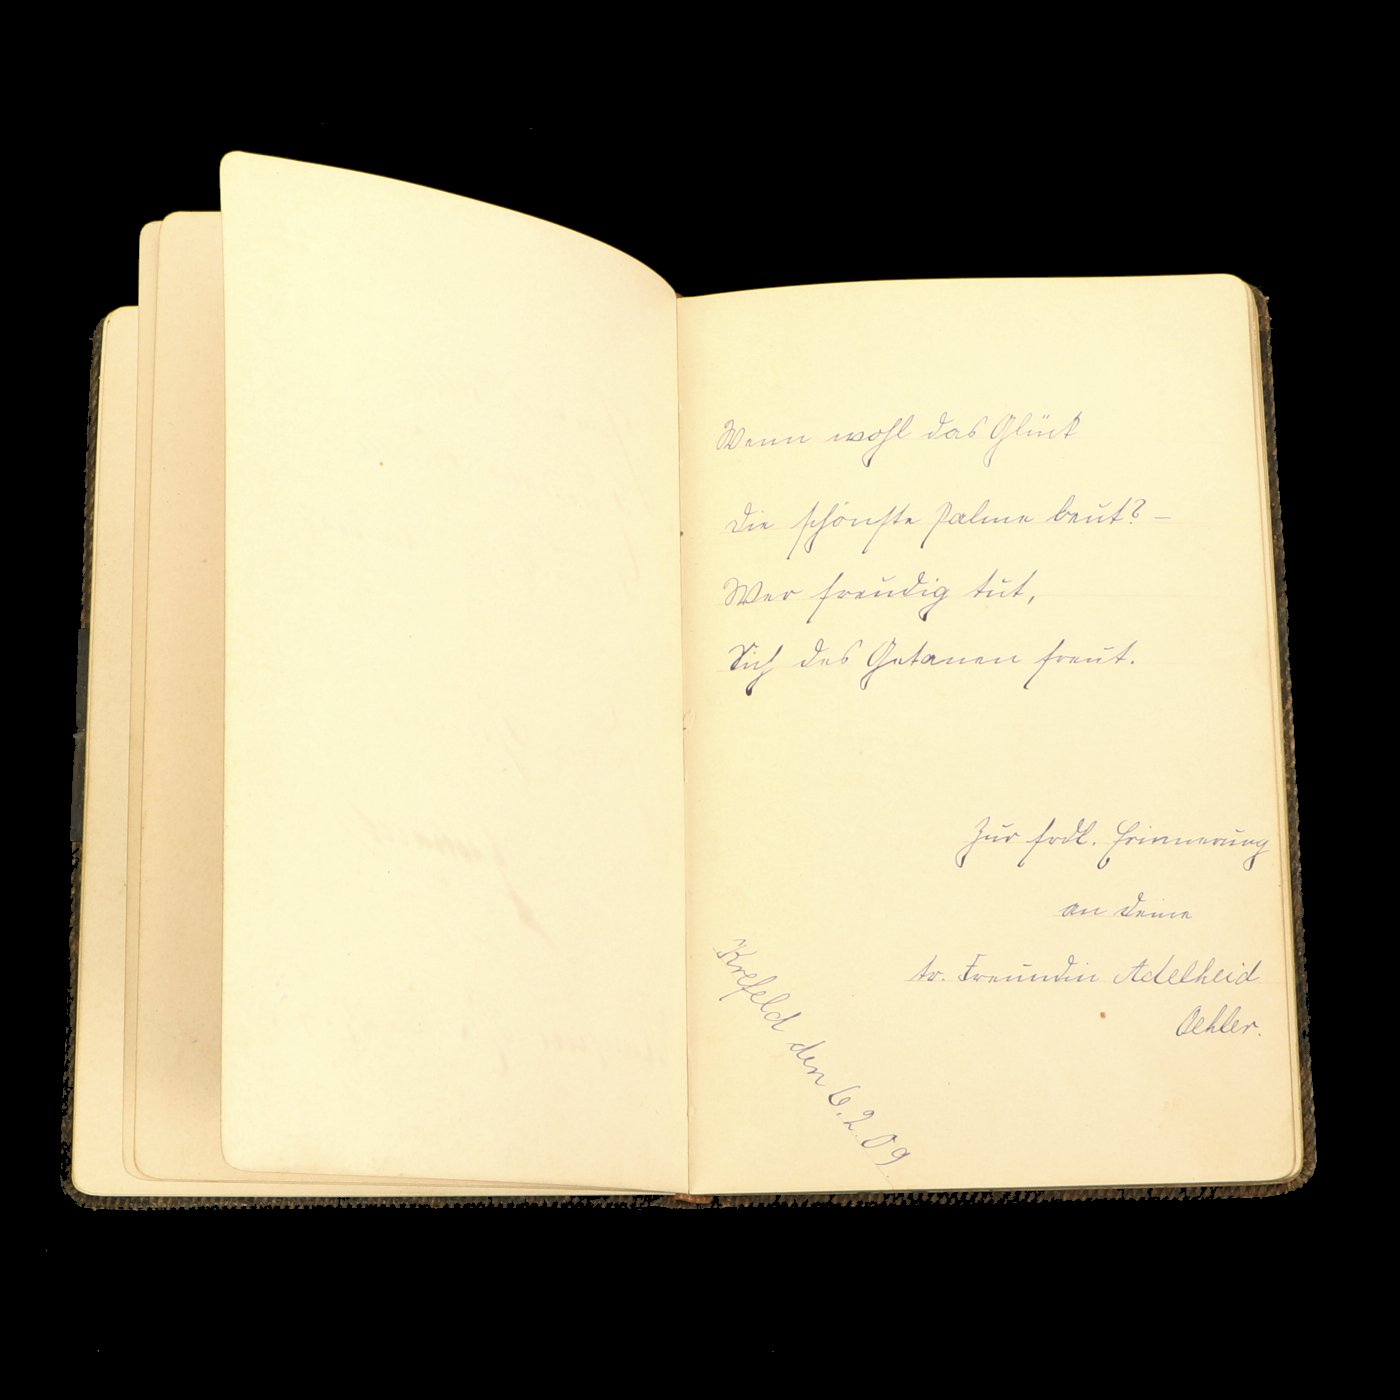 Wenn wohl das Glück
die schönste Palme beut? –
Wer freudig tut,
Sich des Getanen freut.
Zur frdl. Erinnerung
an deine
tr. Freundin Adelheid
Oehler.
Krefeld den 6.2.09.